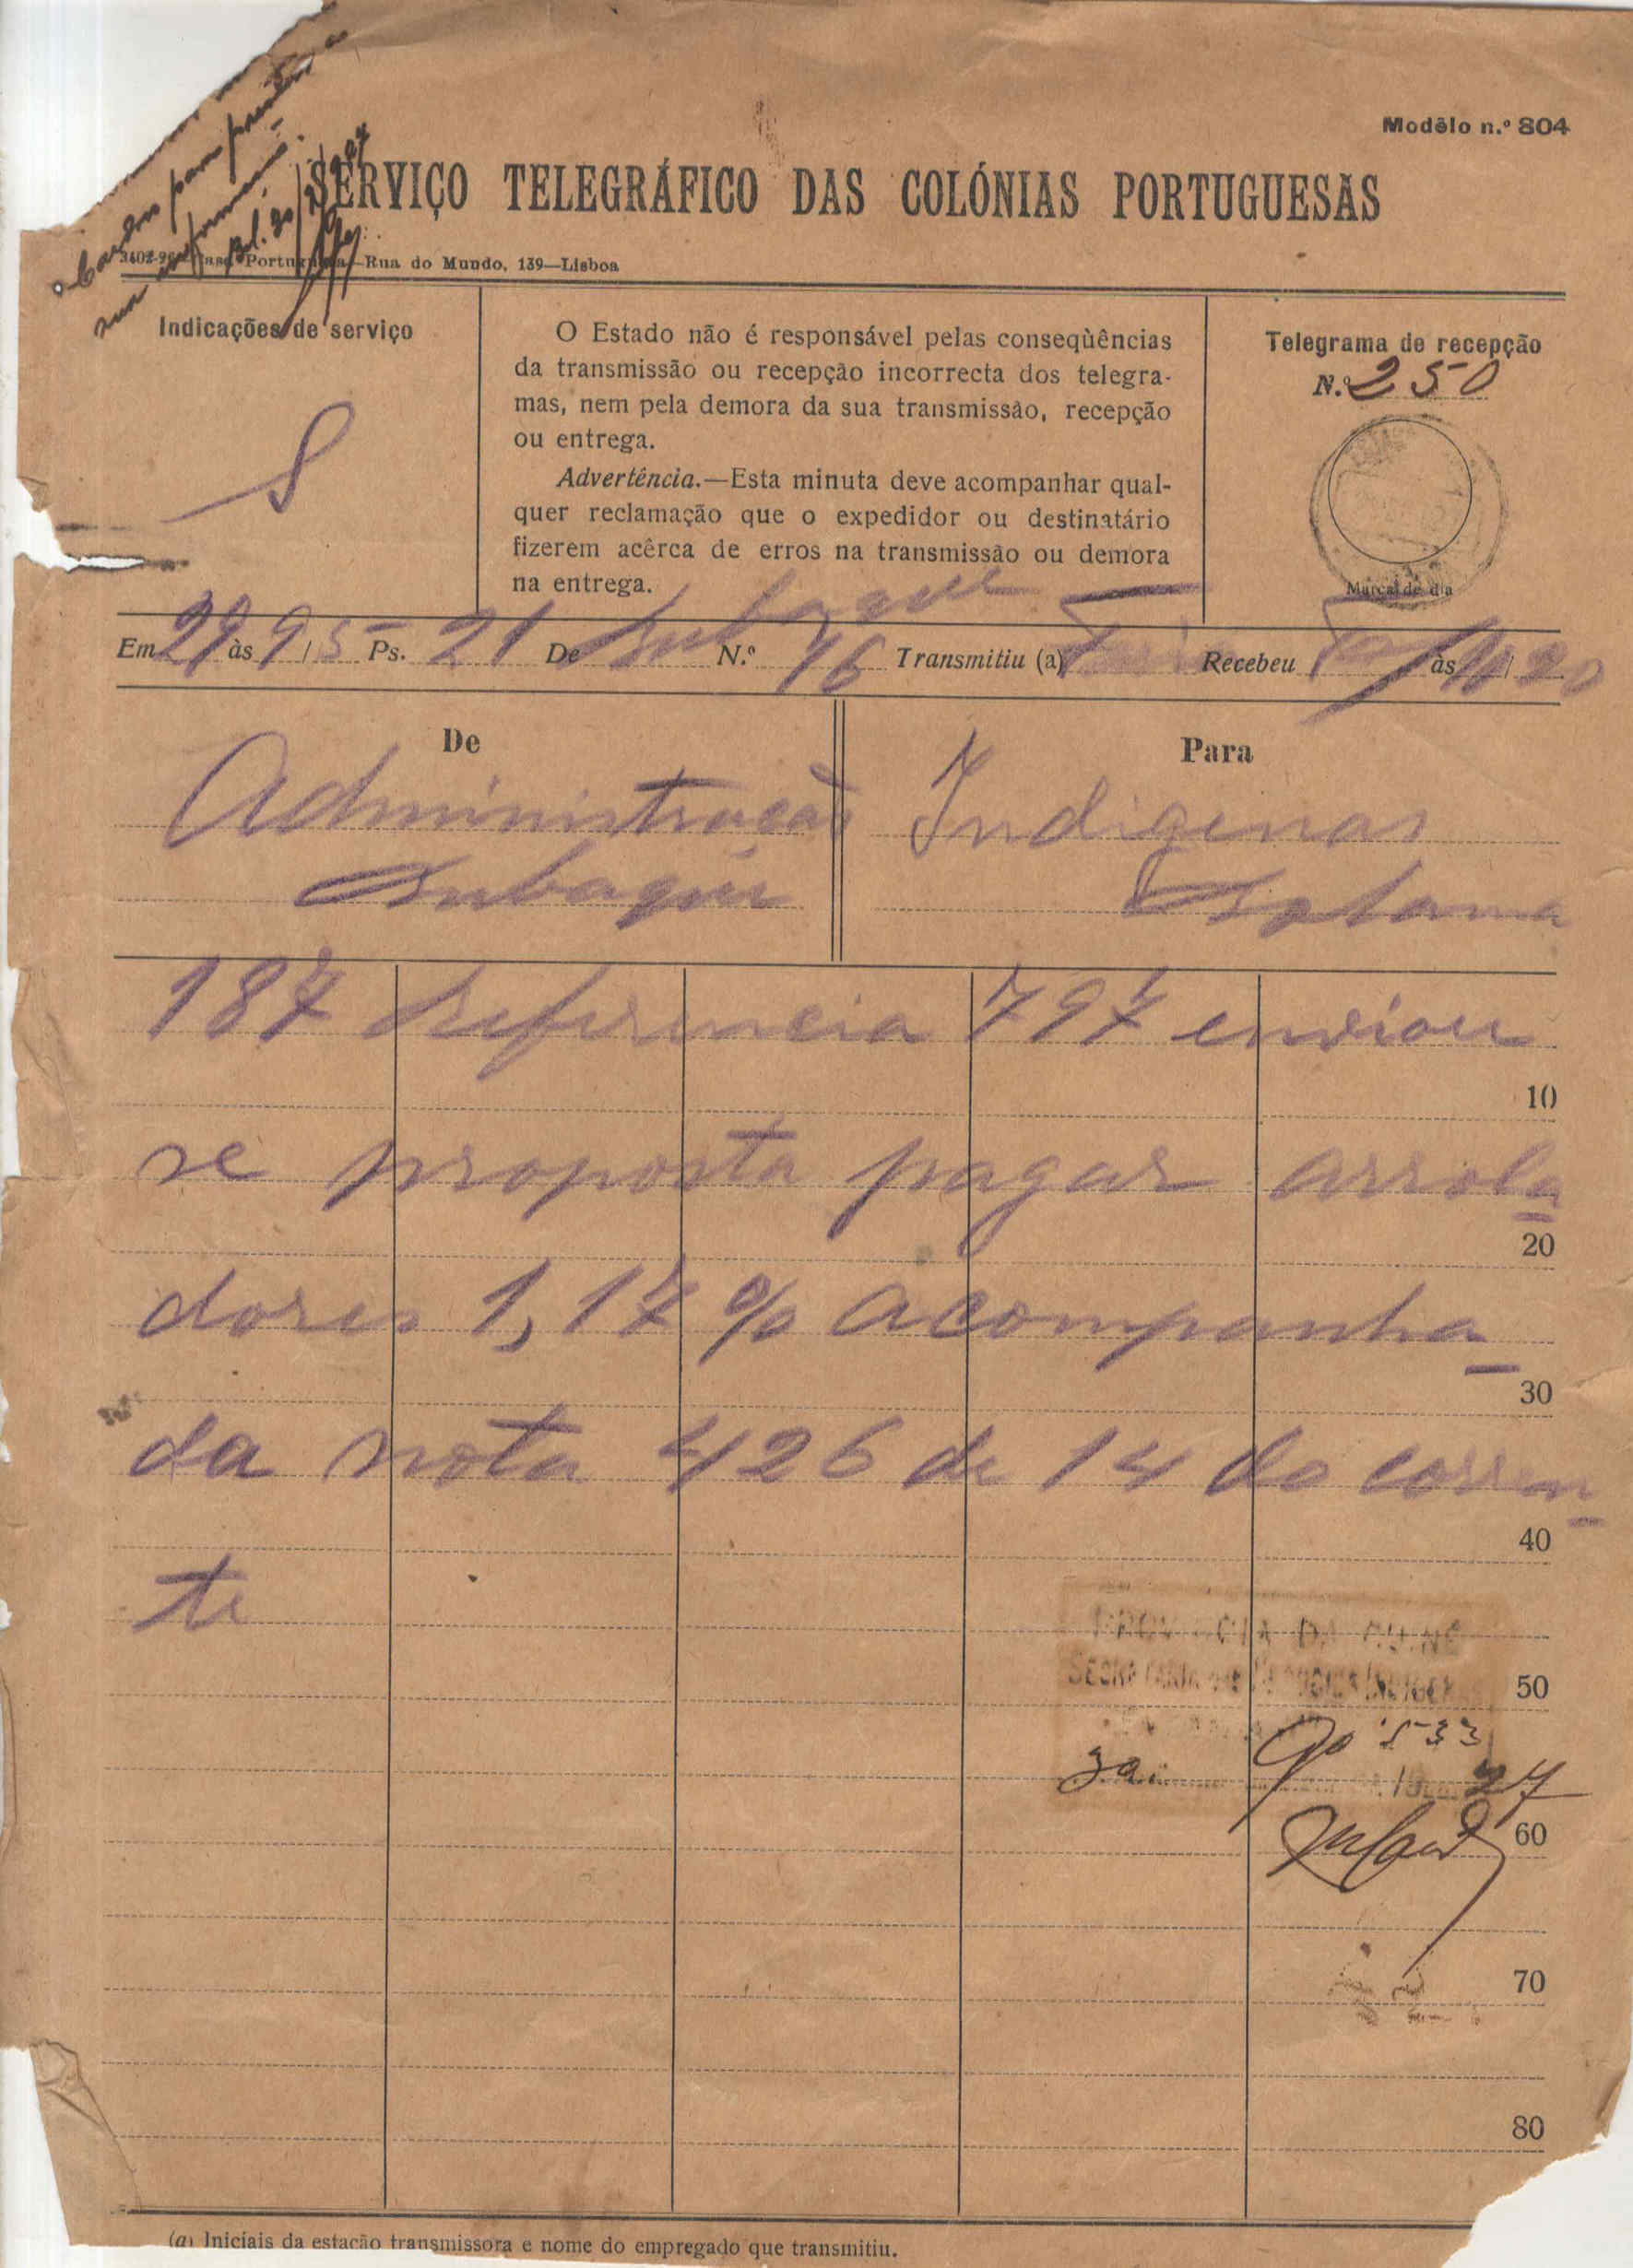 Modêlo n.º 804
SERVIÇO TELEGRÁFICO DAS COLÓNIAS PORTUGUESAS
Rua do Mundo, 139—Lisboa
Indicações de serviço
S
O Estado não é responsável pelas conseqùências
da transmissão ou recepção incorrecta dos telegra-
mas, nem pela demora da sua transmissão, recepção
ou entrega.
Advertência.—Esta minuta deve acompanhar qual-
quer reclamação que o expedidor ou destinatário
fizerem acêrca de erros na transmissão ou demora
na entrega.
Telegrama de recepção
N.º 250
Marca de dia
Em 29 às 9/5 Ps. 21 De Bubaque N.º 46 Transmitiu (a) Recebeu às 10/20
De
Administracão
Bubaque
Para
Indigenas
Bolama
187 Referencia 797 enviou
10
se proposta pagar arrola
20
dores 1,17 % acompanha
30
da nota 426 de 14 do corren
40
te
50
PROVINCIA DA GUINÉ
533
30 9º 27
60
70
80
(a) Iniciais da estação transmissora e nome do empregado que transmitiu.